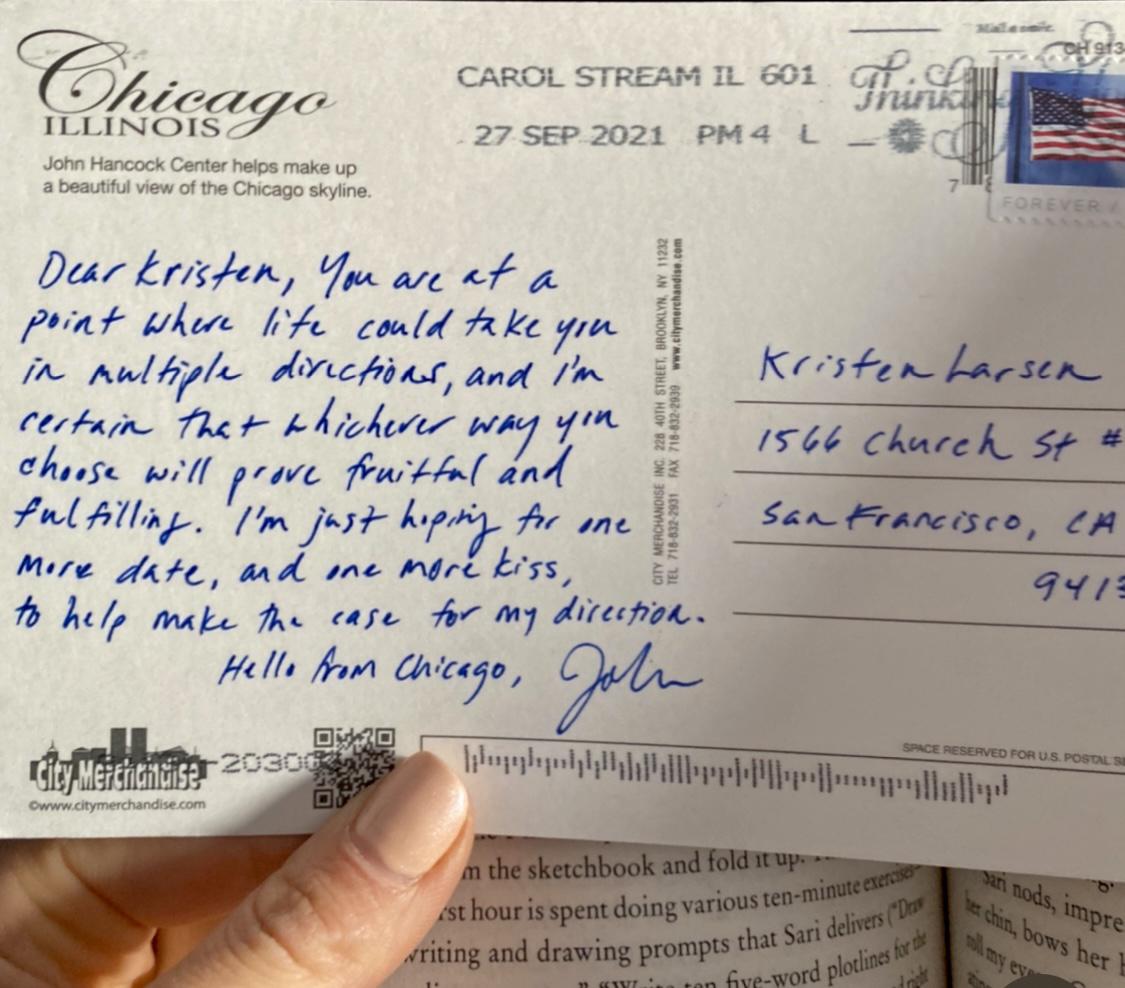 Chicago
ILLINOIS
John Hancock Center helps make up
a beautiful view of the Chicago skyline.
CAROL STREAM IL 601
27 SEP 2021 PM 4 L
Thinkin
CH 913
7
FOREVER /
Dear Kristen, You are at a
point where life could take you
in multiple directions, and I'm
certain that whichever way you
choose will prove fruitful and
fulfilling. I'm just hoping for one
more date, and one more kiss,
to help make the case for my direction.
Hello from Chicago, John
CITY MERCHANDISE INC. 228 40TH STREET, BROOKLYN, NY 11232
TEL 718-832-2931 FAX 718-832-2939 www.citymerchandise.com
Kristen Larsen
1566 Church St #
San Francisco, CA
9413
City Merchandise
20300
©www.citymerchandise.com
SPACE RESERVED FOR U.S. POSTAL S
m the sketchbook and fold it up.
rst hour is spent doing various ten-minute exercises—
writing and drawing prompts that Sari delivers ("Draw
five-word plotlines for the
Sari nods, impre
her chin, bows her h
roll my eye